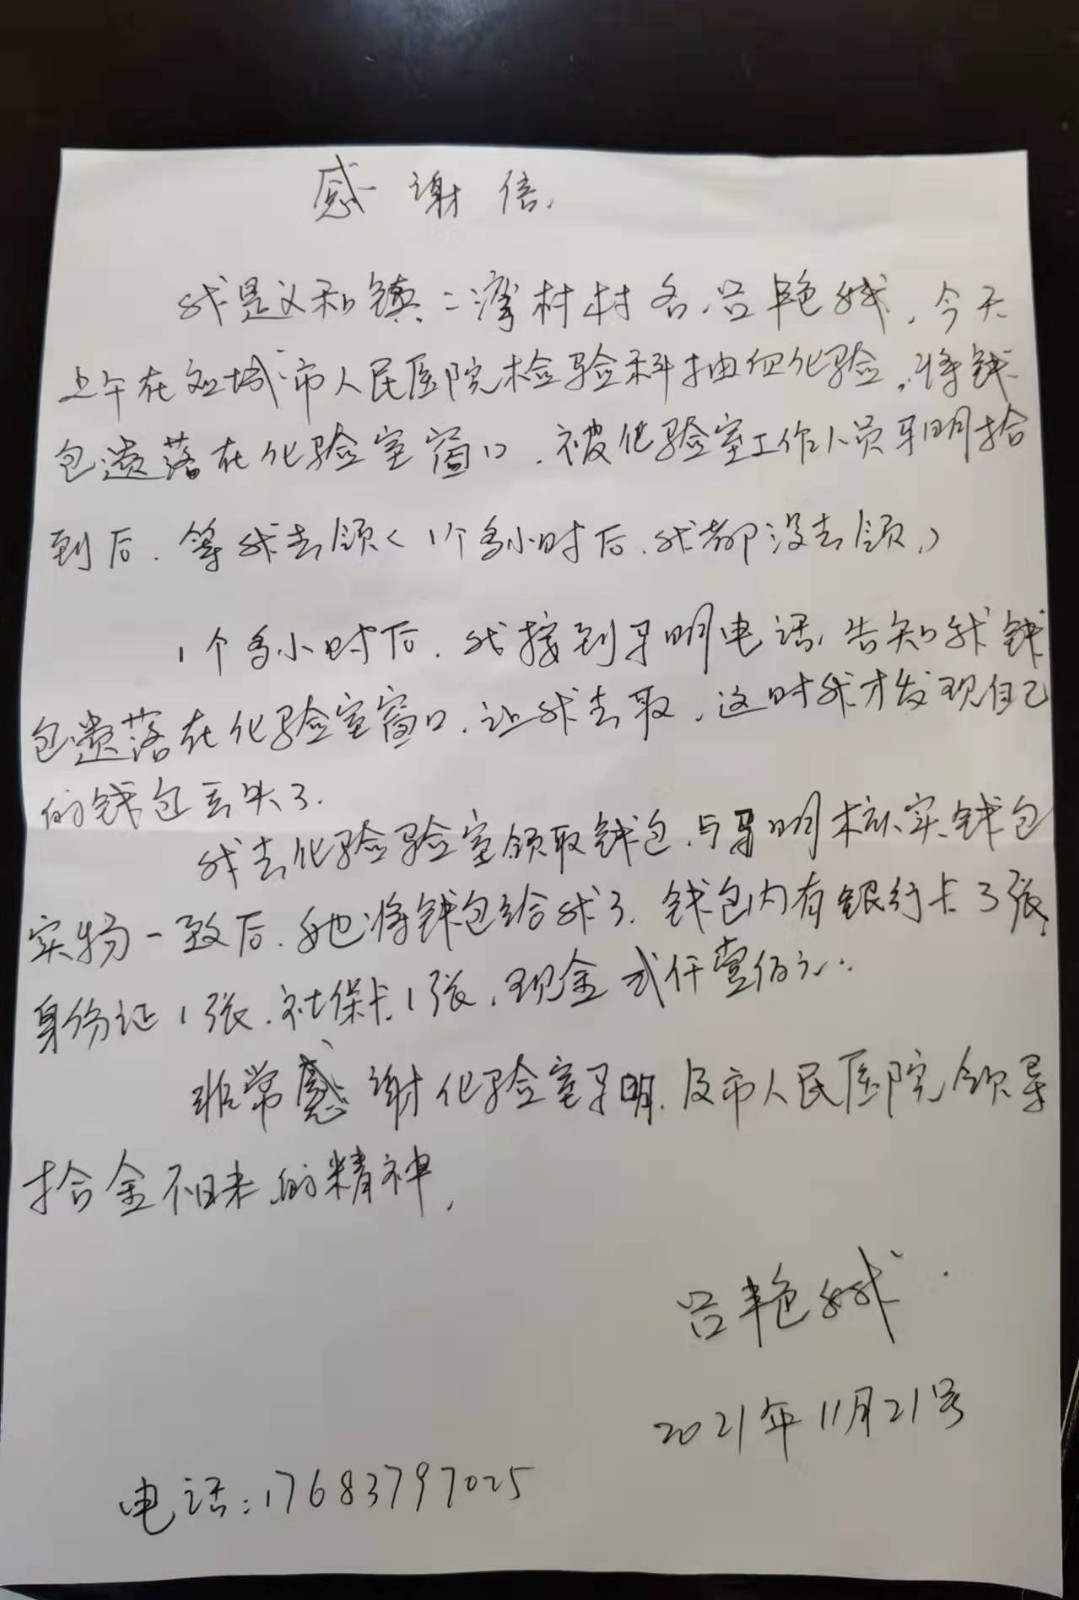 感谢信
我是义和镇二湾村村名吕艳娥,今天
上午在应城市人民医院检验科抽血化验,将钱
包遗落在化验室窗口,被化验室工作人员牙明拾
到后,等我去领(1个多小时后,我都没去领,)
1个多小时后,我接到牙明电话,告知我钱
包遗落在化验室窗口,让我去取,这时我才发现自己
的钱包丢失了.
我去化验验室领取钱包,与牙明核实钱包
实物一致后,她将钱包给我了.钱包内有银行卡3张,
身份证1张,社保卡1张,现金贰仟壹佰元.
非常感谢化验室牙明,及市人民医院领导
拾金不昧的精神,
吕艳娥
2021年11月21号
电话:17683797025